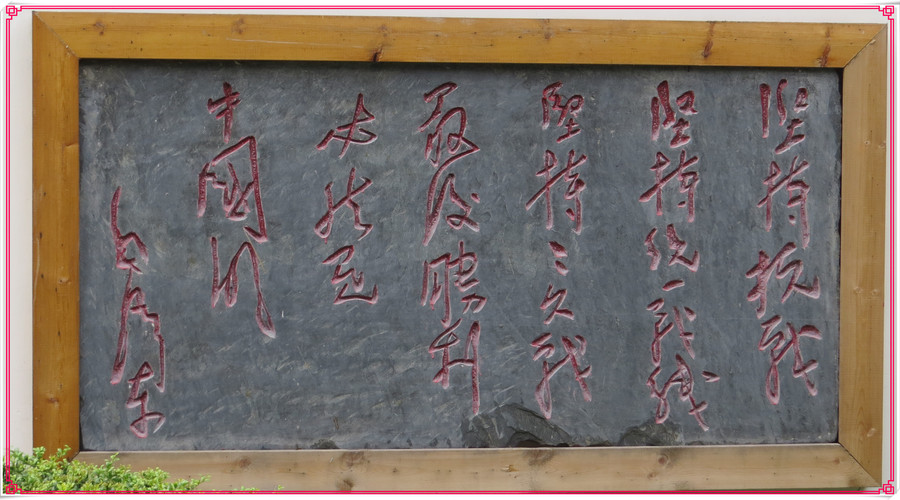 坚持抗战
坚持统一战线
坚持々久战
最后勝利
必然是
中國的
毛泽东